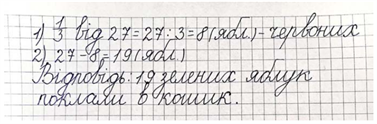 1) 1/3 від 27=27:3=8(ябл.)-червоних
2) 27-8=19(ябл.)
Відповідь: 19 зелених яблук
поклали в кошик.